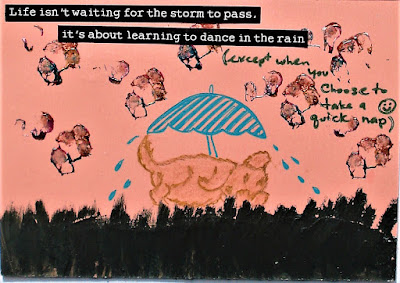 Life isn't waiting for the storm to pass,
it's about learning to dance in the rain
(except when
you
Choose to
take a
quick nap)